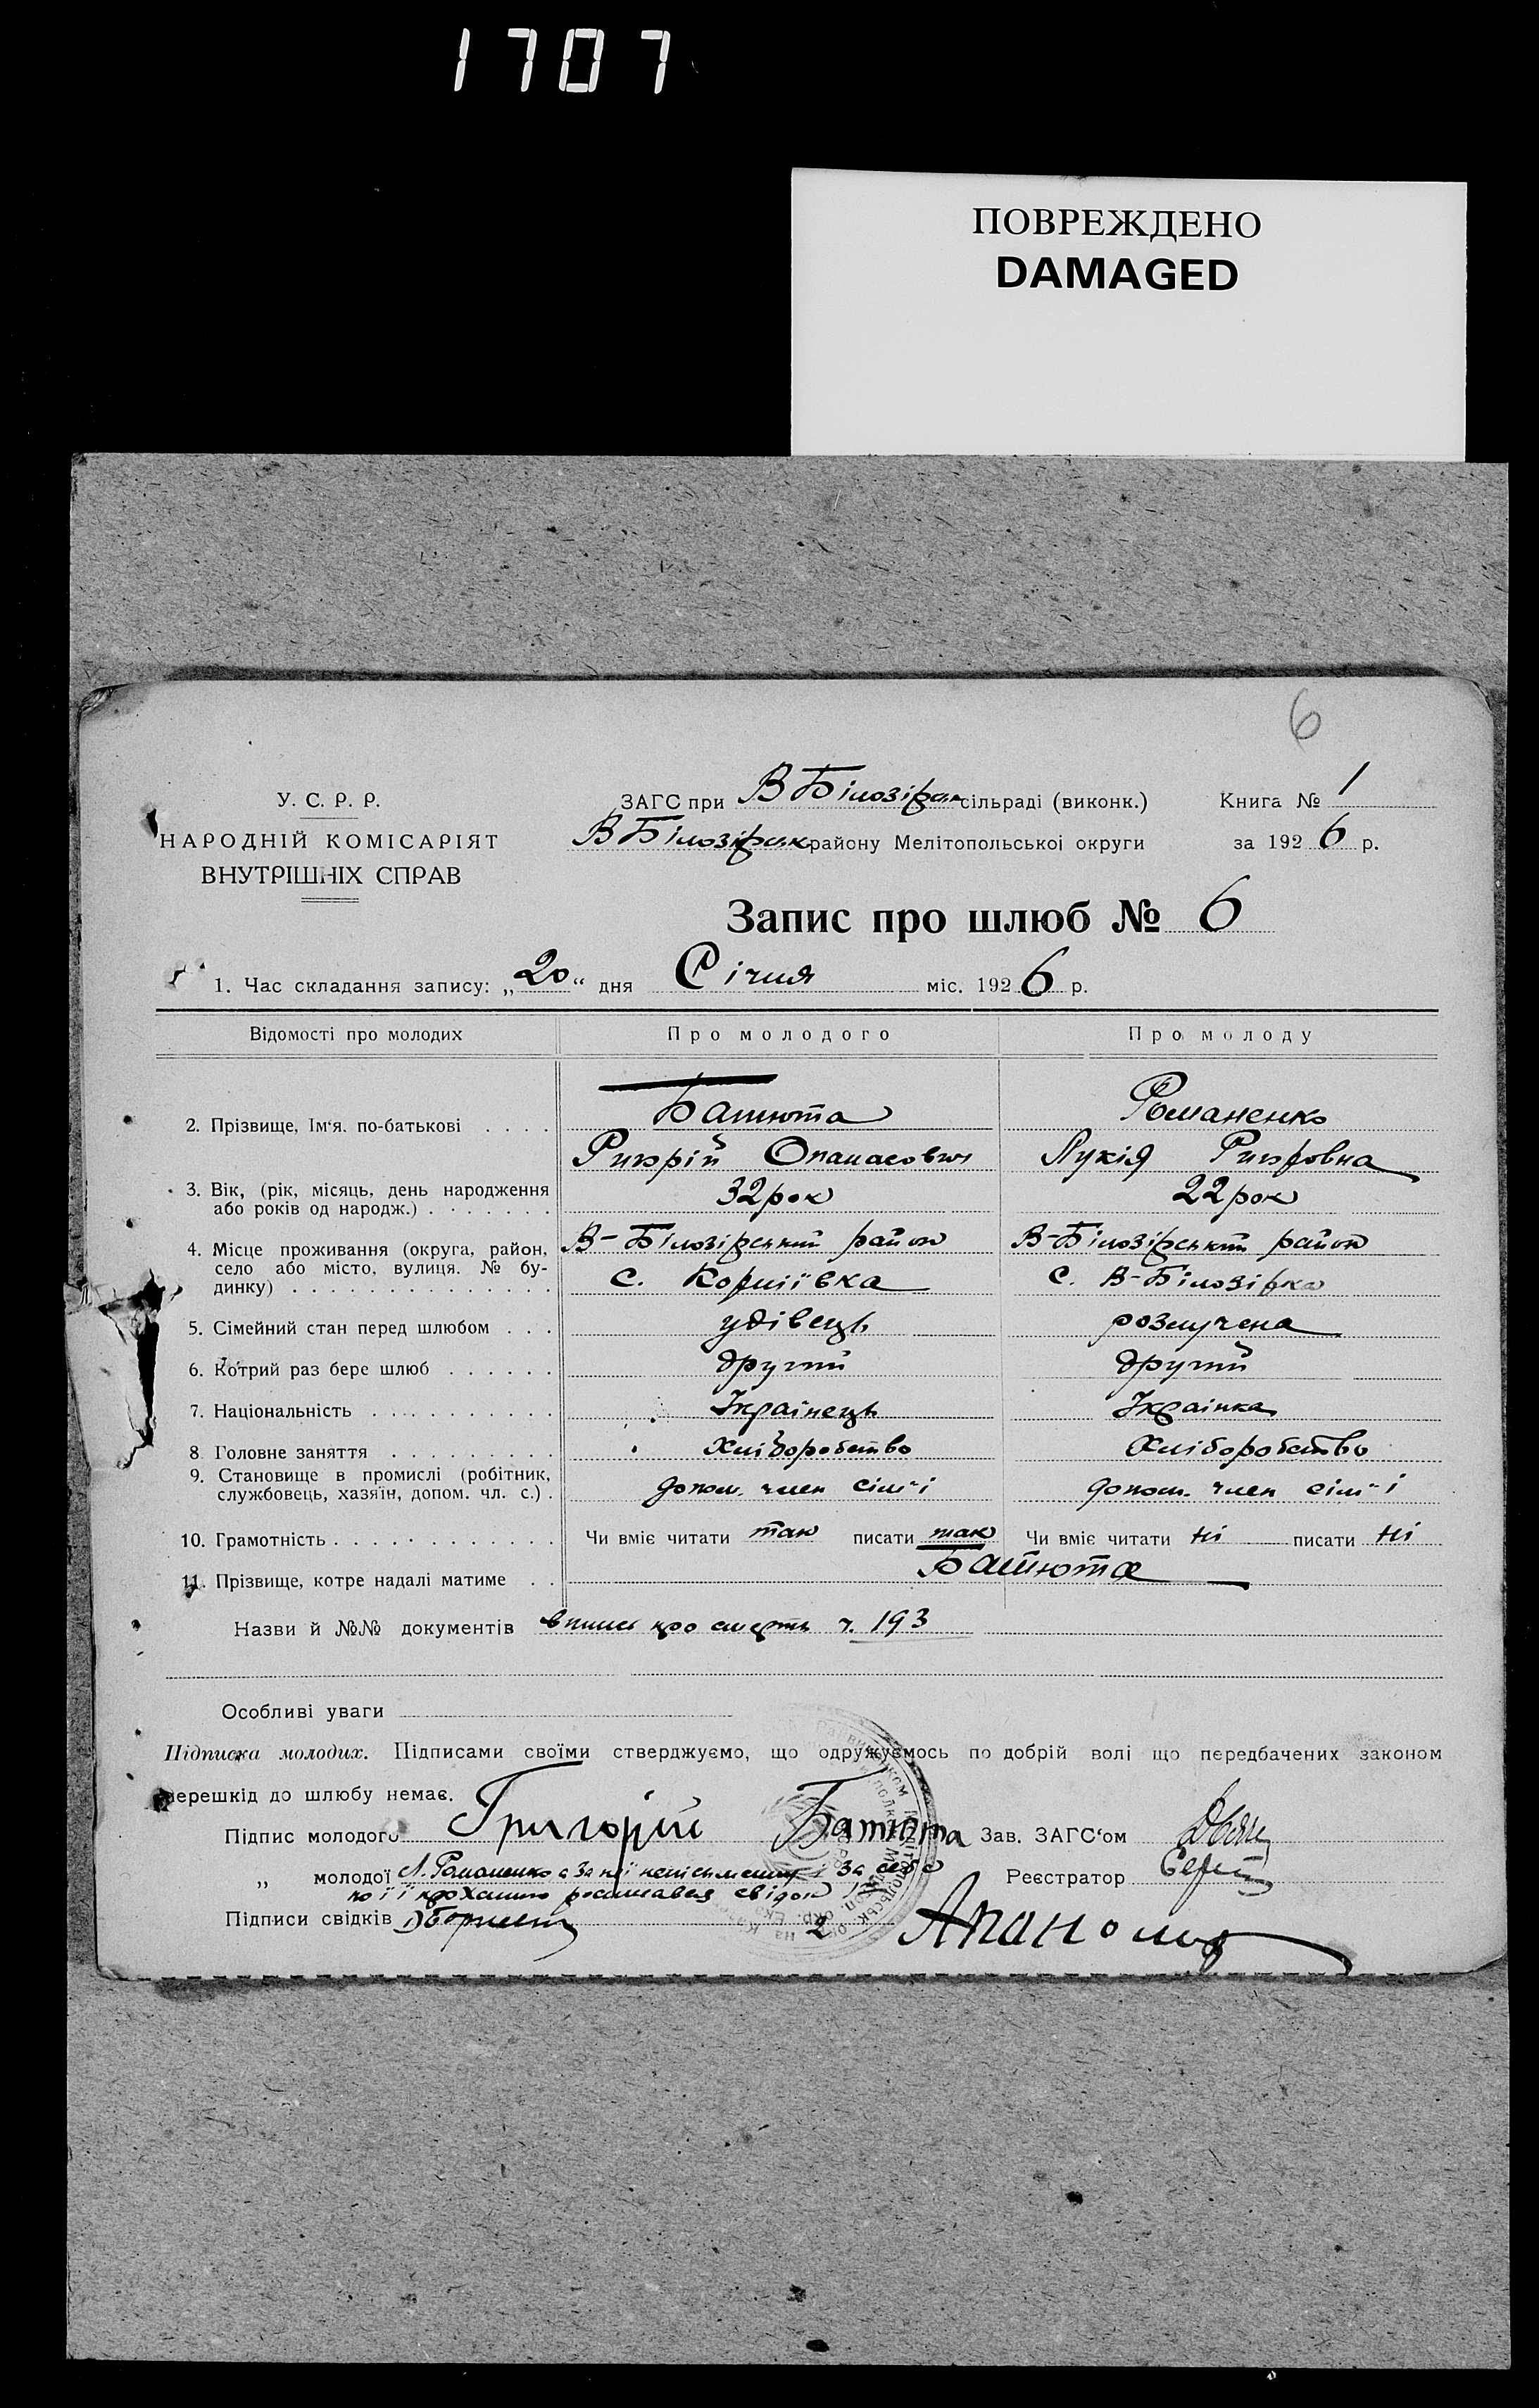 1707
ПОВРЕЖДЕНО
DAMAGED
6
У. С. Р. Р.
НАРОДНІЙ КОМІСАРІЯТ
ВНУТРІШНІХ СПРАВ
ЗАГС при В Білозірск сільраді (виконк.)
В Білозірск району Мелітопольської округи
Книга № 1
за 1926 р.
Запис про шлюб № 6
1. Час складання запису: „20“ дня Січня міс. 1926 р.
Відомості про молодих Про молодого Про молоду
2. Прізвище, Ім'я. по-батькові . . . . Батюта Романенко
Ригорій Опанасович Лукія Ригоровна
3. Вік, (рік, місяць, день народження
або років од народж.) . . . . . . . 32 рок 22 рок
4. Місце проживання (округа, район, В-Білозірський район В-Білозірський район
село або місто, вулиця. № бу-
динку) . . . . . . . . . . . . . . С. Корніївка С. В-Білозірка
5. Сімейний стан перед шлюбом . . . удівець розлучена
6. Котрий раз бере шлюб . . . . . . другий другий
7. Національність . . . . . . . . . . Українець Українка
8. Головне заняття . . . . . . . . . Хліборобство Хліборобство
9. Становище в промислі (робітник,
службовець, хазяїн, допом. чл. с.) . допом. член сім'ї допом. член сім'ї
10. Грамотність . . . . . . . . . . . . Чи вміє читати так писати так Чи вміє читати ні писати ні
11. Прізвище, котре надалі матиме . . Батюта
Назви й №№ документів впись про смерть ч. 193
Особливі уваги
Підписка молодих. Підписами своїми стверджуємо, що одружуємось по добрій волі що передбачених законом
перешкід до шлюбу немає.
Підпис молодого Григорій Батюта Зав. ЗАГС'ом
„ молодої Л. Романенко а за неї неписьменну і за себе Реєстратор
по її проханню росписався свідок 1)
Підписи свідків 2